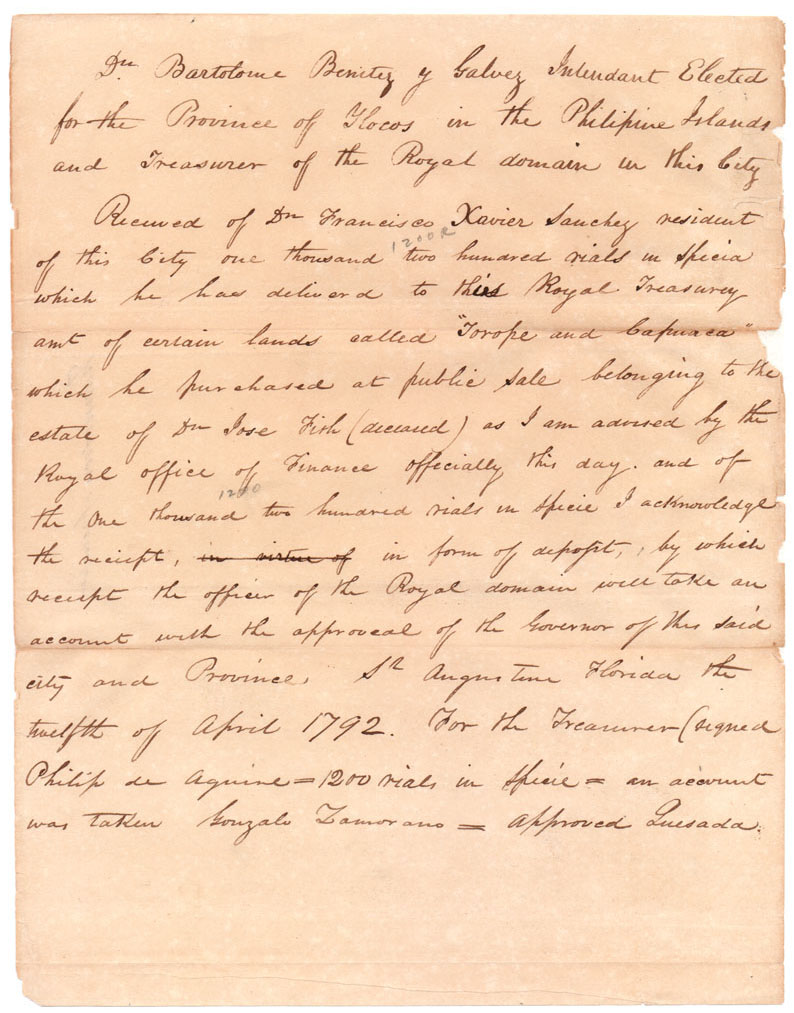 Dn Bartolome Benitez y Galvez Intendant Elected
for the Province of Ylocos in the Philipine Islands
and Treasurer of the Royal domain in this City
Received of Dn Francisco Xavier Sanchez resident
1200 R
of this City one thousand two hundred rials in specia
which he has deliverd to this Royal Treasurey
amt of certain lands called "Torope and Capuaca"
which he purchased at public sale belonging to the
estate of Dn Jose Fish (deceased) as I am advised by the
Royal office of Finance officially this day. and of
1200
the one thousand two hundred rials in specie I acknowledge
the reciept, in virtue of in form of deposit, by which
receipt the officer of the Royal domain will take an
account with the approveal of the Governor of this said
city and Province. St Augustine Florida the
twelfth of April 1792. For the Treasurer (signed
Philip de Aguirre = 1200 rials in specie = an account
was taken Gonzalo Zamorano = approved Quesada.